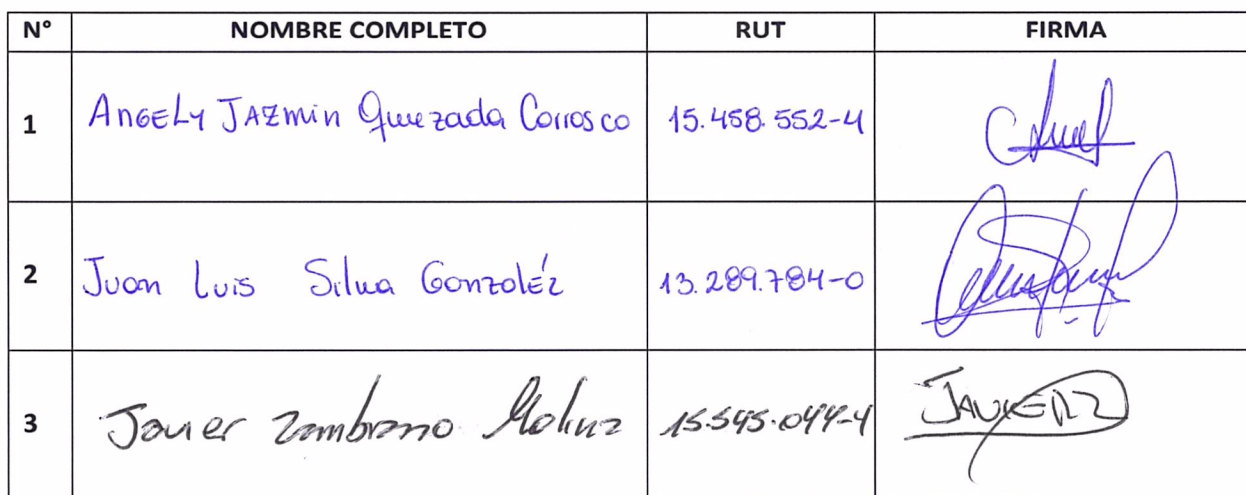 N° NOMBRE COMPLETO RUT FIRMA
1 Angely Jazmin Quezada Carrasco 15.458.552-4
2 Juan Luis Silva Gonzaléz 13.289.784-0
3 Javier Zambrano Molina 15.545.044-4 JAVIER Z